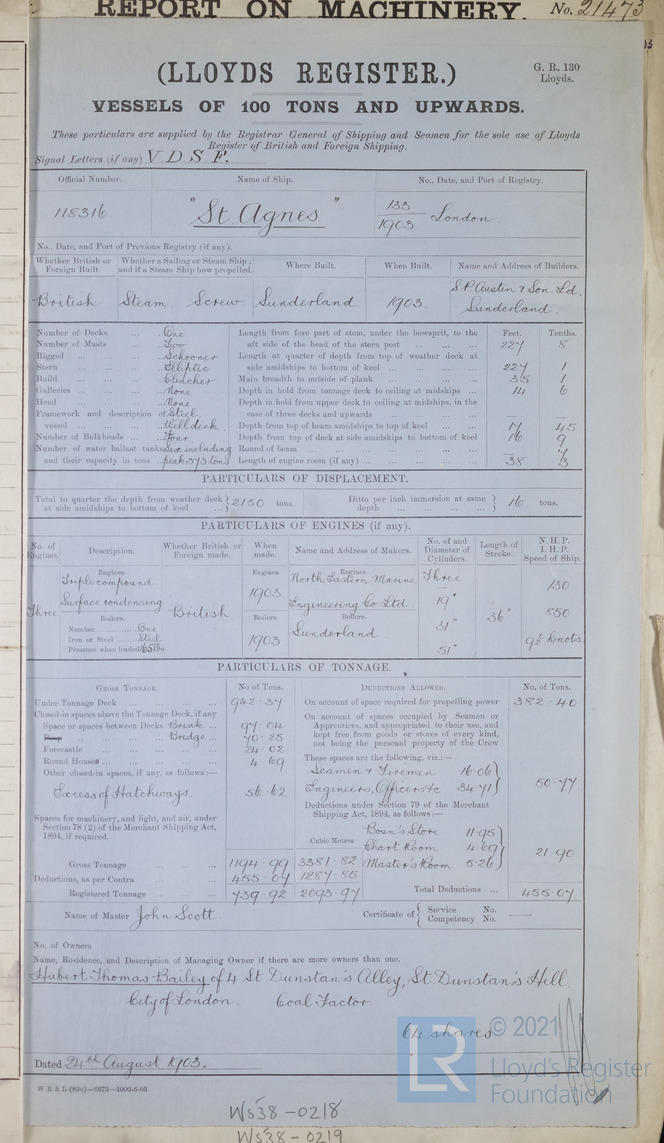 REPORT ON MACHINERY. No. 21473
(LLOYDS REGISTER.)
G. R. 130
Lloyds.
VESSELS OF 100 TONS AND UPWARDS.
These particulars are supplied by the Registrar General of Shipping and Seamen for the sole use of Lloyds
Register of British and Foreign Shipping.
Signal Letters (if any) V D S F.
Official Number. Name of Ship. No., Date, and Port of Registry.
118316 "St. Agnes" 133/1903 London
No., Date, and Port of Previous Registry (if any).
Whether British or Foreign Built. Whether a Sailing or Steam Ship; and if a Steam Ship how propelled. Where Built. When Built. Name and Address of Builders.
British Steam Screw Sunderland 1903. S. P. Austin & Son Ld. Sunderland
Number of Decks ... One Length from fore part of stem, under the bowsprit, to the Feet. Tenths.
Number of Masts ... Two aft side of the head of the stern post ... 227 8
Rigged ... Schooner Length at quarter of depth from top of weather deck at
Stern ... Elliptic side amidships to bottom of keel ... 227 1
Build ... Clencher Main breadth to outside of plank ... 35 1
Galleries ... None Depth in hold from tonnage deck to ceiling at midships ... 14 6
Head ... None Depth in hold from upper deck to ceiling at midships, in the
Framework and description of Steel case of three decks and upwards ... — —
vessel ... Well deck Depth from top of beam amidships to top of keel ... 17 45
Number of Bulkheads ... Four Depth from top of deck at side amidships to bottom of keel 16 9
Number of water ballast tanks including Round of beam ... — 7
and their capacity in tons peak 573 tons Length of engine room (if any) ... 38 3
PARTICULARS OF DISPLACEMENT.
Total to quarter the depth from weather deck at side amidships to bottom of keel ... 2150 tons. Ditto per inch immersion at same depth ... 16 tons.
PARTICULARS OF ENGINES (if any).
No. of Engines. Description. Whether British or Foreign made. When made. Name and Address of Makers. No. of and Diameter of Cylinders. Length of Stroke. N. H. P. I. H. P. Speed of Ship.
Engines. Engines. Engines.
Triple compound North Eastern Marine Three
1903 130
Surface condensing Engineering Co Ltd 19"
Three Boilers. British Boilers. Boilers. 36" 850
Number ... One Sunderland 31"
Iron or Steel ... Steel 1903 9½ knots
Pressure when loaded 165 lbs 51"
PARTICULARS OF TONNAGE.
GROSS TONNAGE. No of Tons. DEDUCTIONS ALLOWED. No. of Tons.
Under Tonnage Deck ... 942·37 On account of space required for propelling power 382·40
Closed-in spaces above the Tonnage Deck, if any On account of spaces occupied by Seamen or
Space or spaces between Decks Break ... 97·04 Apprentices, and appropriated to their use, and
Poop ... Bridge ... 70·25 kept free from goods or stores of every kind,
Forecastle ... 24·02 not being the personal property of the Crew
Round Houses ... 4·69 These spaces are the following, viz.:—
Other closed-in spaces, if any, as follows:— Seamen & Firemen 16·06
Excess of Hatchways. 56·62 Engineers, Officers &c 34·71 50·77
Spaces for machinery, and light, and air, under Deductions under Section 79 of the Merchant
Section 78 (2) of the Merchant Shipping Act, Shipping Act, 1894, as follows:—
1894, if required. Cubic Metres Boan's Store 11·95
Chart Room 4·69 21·90
Gross Tonnage 1194·99 3381·82 Master's Room 5·26
Deductions, as per Contra ... 455·07 1287·85
Registered Tonnage ... 739·92 2093·97 Total Deductions ... 455·07
Name of Master John Scott. Certificate of { Service No. Competency No. —
No. of Owners
Name, Residence, and Description of Managing Owner if there are more owners than one.
Hubert Thomas Bailey of 4 St Dunstan's Alley, St. Dunstan's Hill
City of London. Coal Factor.
64 shares
Dated 24th August 1903.
W B & L (83c)—6673—1000-6-03
© 2021
LR
Lloyd's Register
Foundation
WS38-0218
WS38-0219